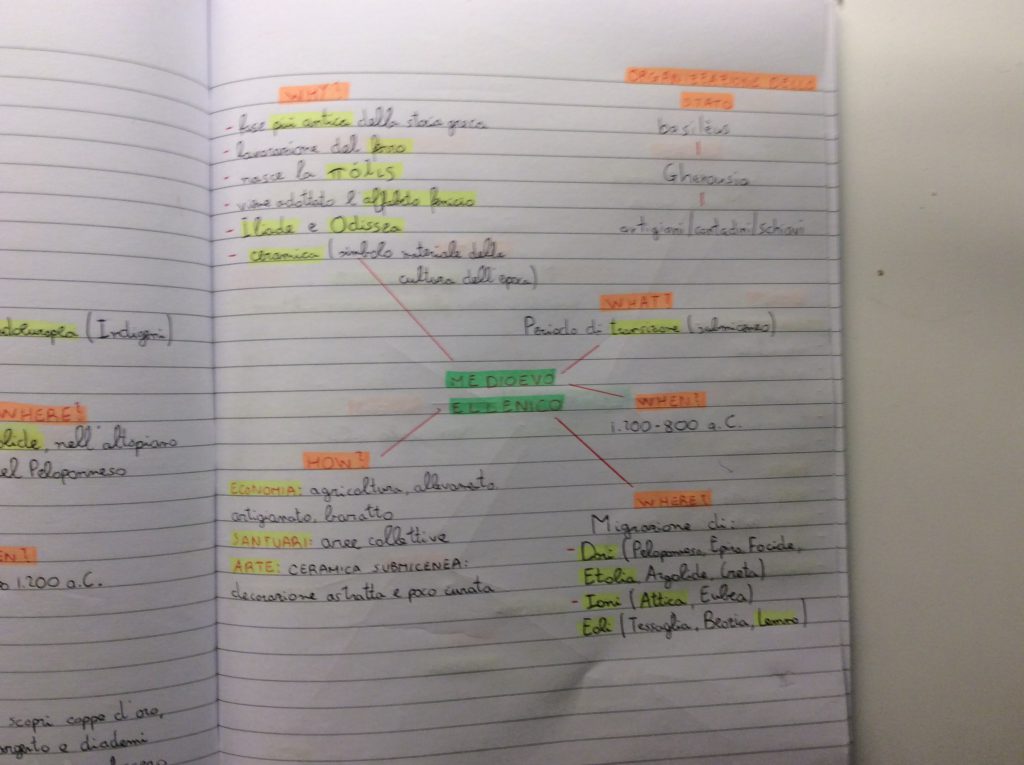 doeuropea (Indigeni)
WHERE?
olide, nell'altopiano
el Peloponneso
EN?
1.200 a.C.
scopri coppe d'oro,
argento e diademi
WHY?
- fase più antica della storia greca
- lavorazione del ferro
- nasce la πόλις
- viene adottato l'alfabeto fenicio
- Iliade e Odissea
- ceramica (simbolo materiale della
cultura dell'epoca)
ORGANIZZAZIONE DELLO
STATO
basileus
Gherousia
artigiani/contadini/schiavi
WHAT?
Periodo di transizione (submiceneo)
MEDIOEVO
ELLENICO
WHEN?
1.200-800 a.C.
HOW?
ECONOMIA: agricoltura, allevamento
artigianato, baratto
SANTUARI: aree collettive
ARTE: CERAMICA SUBMICENEA:
decorazione astratta e poco curata
WHERE?
Migrazione di:
- Dori (Peloponneso, Epiro Focide,
Etolia Argolide, Creta)
- Ioni (Attica, Eubea)
Eoli (Tessaglia, Beozia, Lemno)